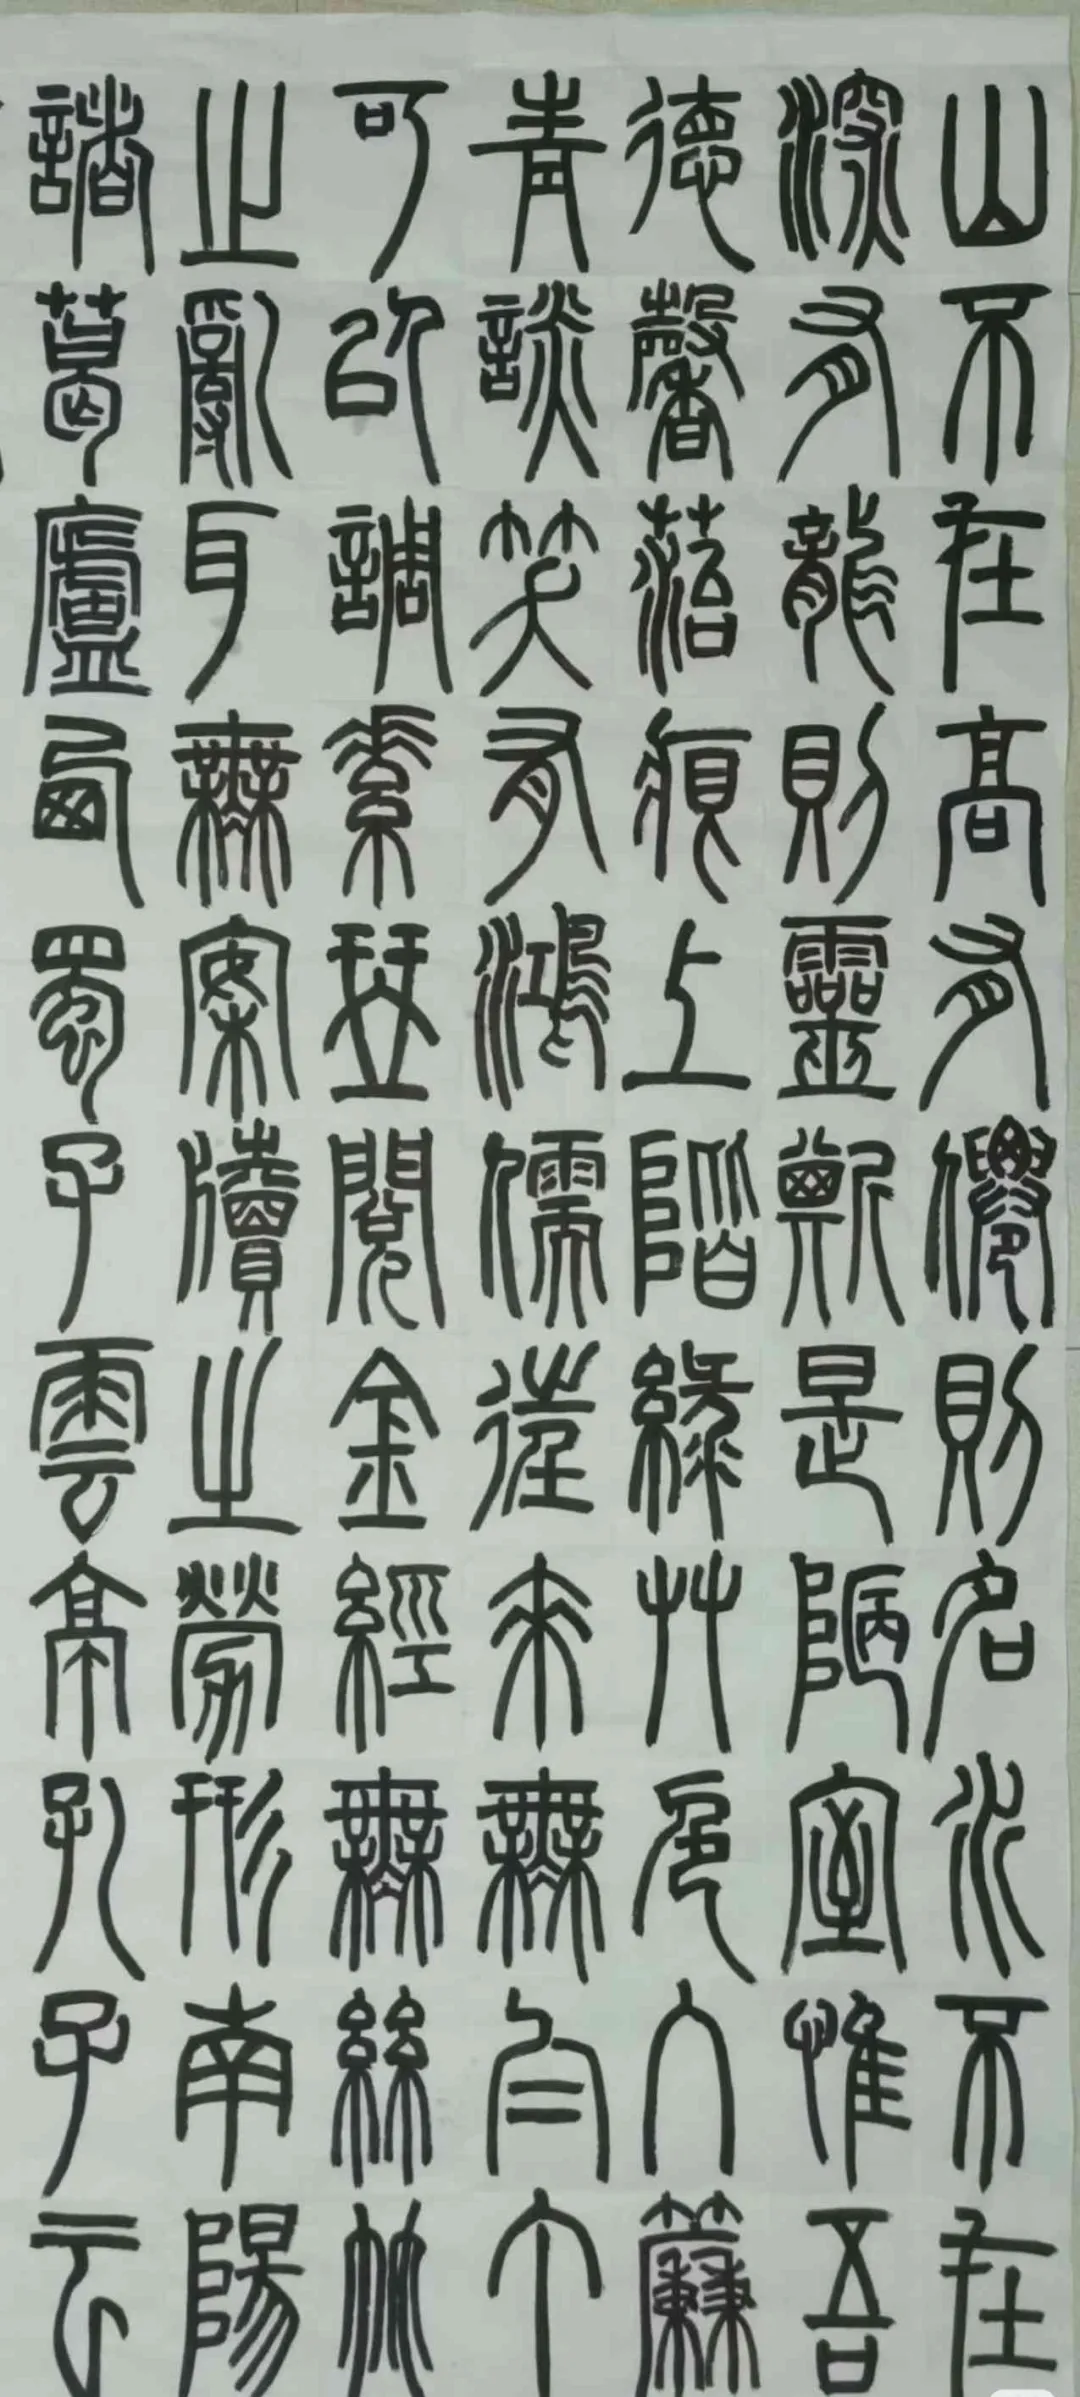 山不在高有僊則名水不在
深有龍則靈斯是陋室惟吾
德馨菭痕上階綠艸色入簾
青談笑有鴻儒往來無白丁
可以調素琴閱金經無絲竹
之亂耳無案牘之勞形南陽
諸葛廬西蜀子雲亭孔子云